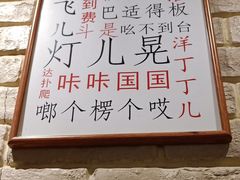 飞儿
到费斗
巴适得板
是
吆不到台
灯儿晃
洋丁丁儿
达扑爬
咔咔国国
啷个楞个哎